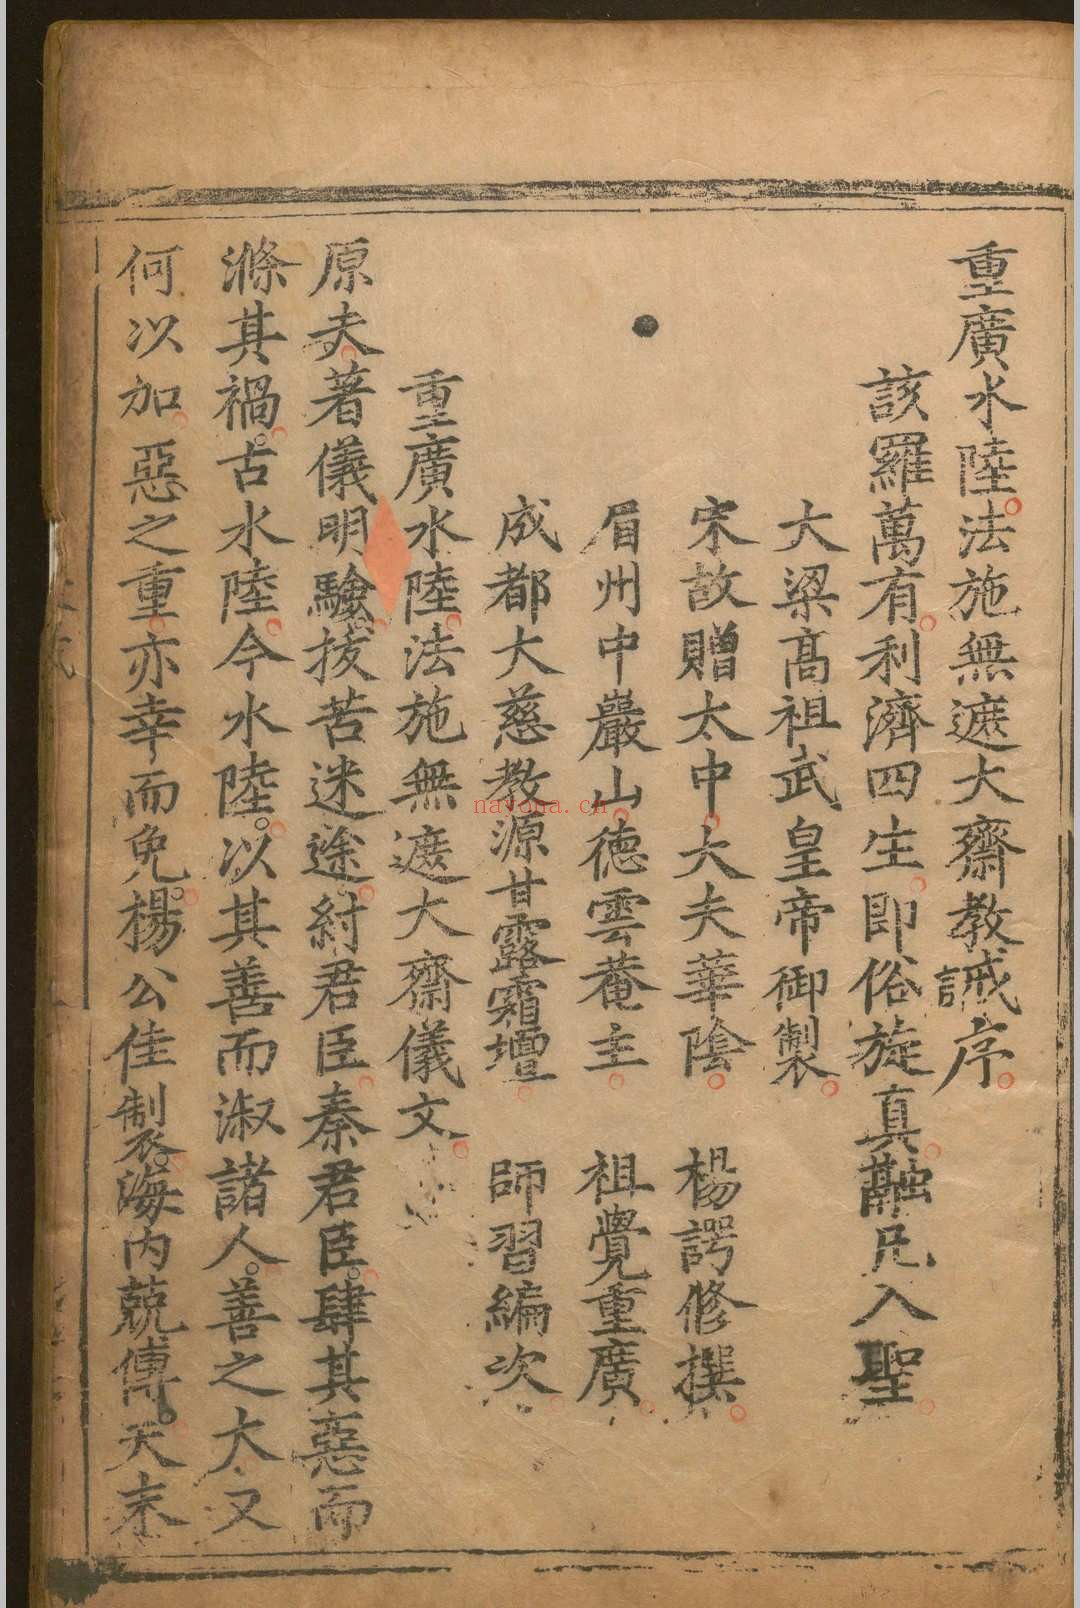 重廣水陸法施無遮大齋教誡序
該羅萬有利濟四生即俗旋真融凡入聖
大梁髙祖武皇帝御製
宋故贈太中大夫華陰 楊諤修撰
眉州中巖山德雲菴主 祖覺重廣
成都大慈教源甘露霜壇 師習編次
重廣水陸法施無遮大齋儀文
原夫著儀明驗拔苦迷途紂君臣秦君臣肆其惡而
滌其禍古水陸今水陸以其善而淑諸人善之大文
何以加惡之重亦幸而免楊公佳製海内兢傳天末
nayona.cn